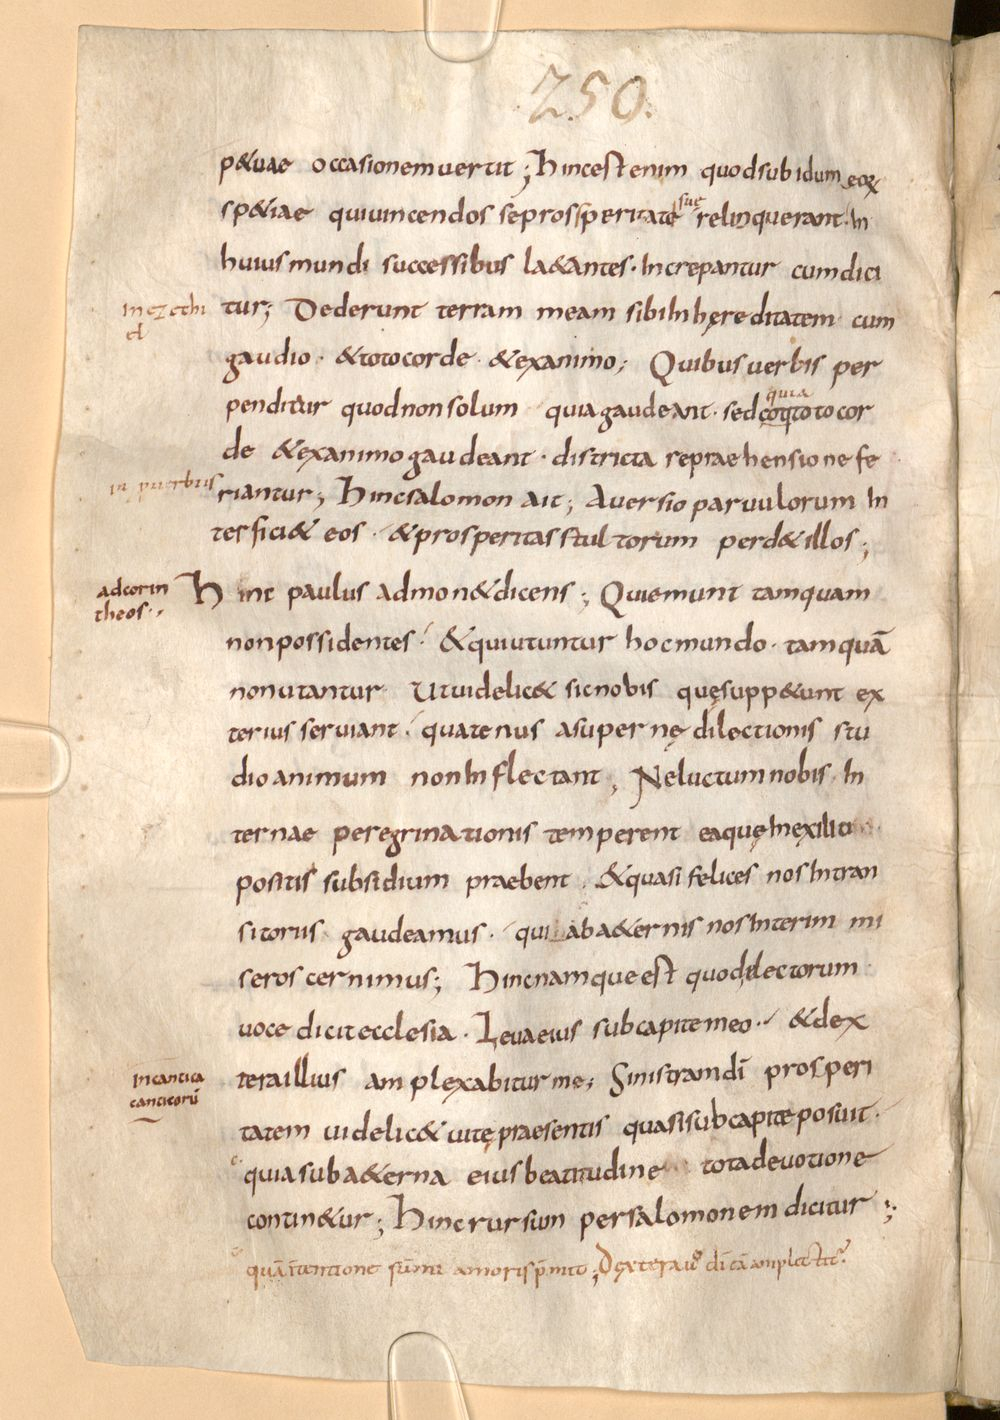 250.
p&uae occasionem uertit; Hinc est enim quod sub idumeorꝝ
sp&iae qui uincendos se prosperitate suę relinquerant. In
huius mundi successibus la&antes. Increpantur cum dici
In ezechi
el
tur; Dederunt terram meam sibi In hęreditatem cum
gaudio. & toto corde. & ex animo; Quibus uerbis per
penditur quod non solum quia gaudeant. sed quia toto cor
de & ex animo gaudeant. districta repraehensione fe
in puerbiis
riantur; Hinc salomon ait; Auersio paruulorum In
terfici& eos. & prosperitas stultorum perd& illos;
ad corin
theos.,
Hinc paulus admon& dicens; Qui emunt tamquam
non possidentes. & qui utuntur hoc mundo. tamquā
non utantur Ut uidelic& sic nobis quę supp&unt ex
terius seruiant. quatenus a supernę dilectionis stu
dio animum non Inflectant; Ne luctum nobis. In
ternae peregrinationis temperent ea quę In exilio
positis subsidium praebent. & quasi felices nos In tran
sitoriis gaudeamus. qui ab a&ernis nos Interim mi
seros cernimus; Hinc namque est quod electorum
uoce dicit ecclesia. Leua eius sub capite meo. & dex
In cantica
canticorū
tera illius amplexabitur me; Sinistram dī prosperi
tatem uidelic& uitę praesentis quasi sub capite posuit.
quia sub a&erna eius beatitudine tota deuotione
contin&ur; Hinc rursum per salomonem dicitur;
quā intentione sūmi amoris p̄mit; Dextera uº dī eā amplectit᷑.